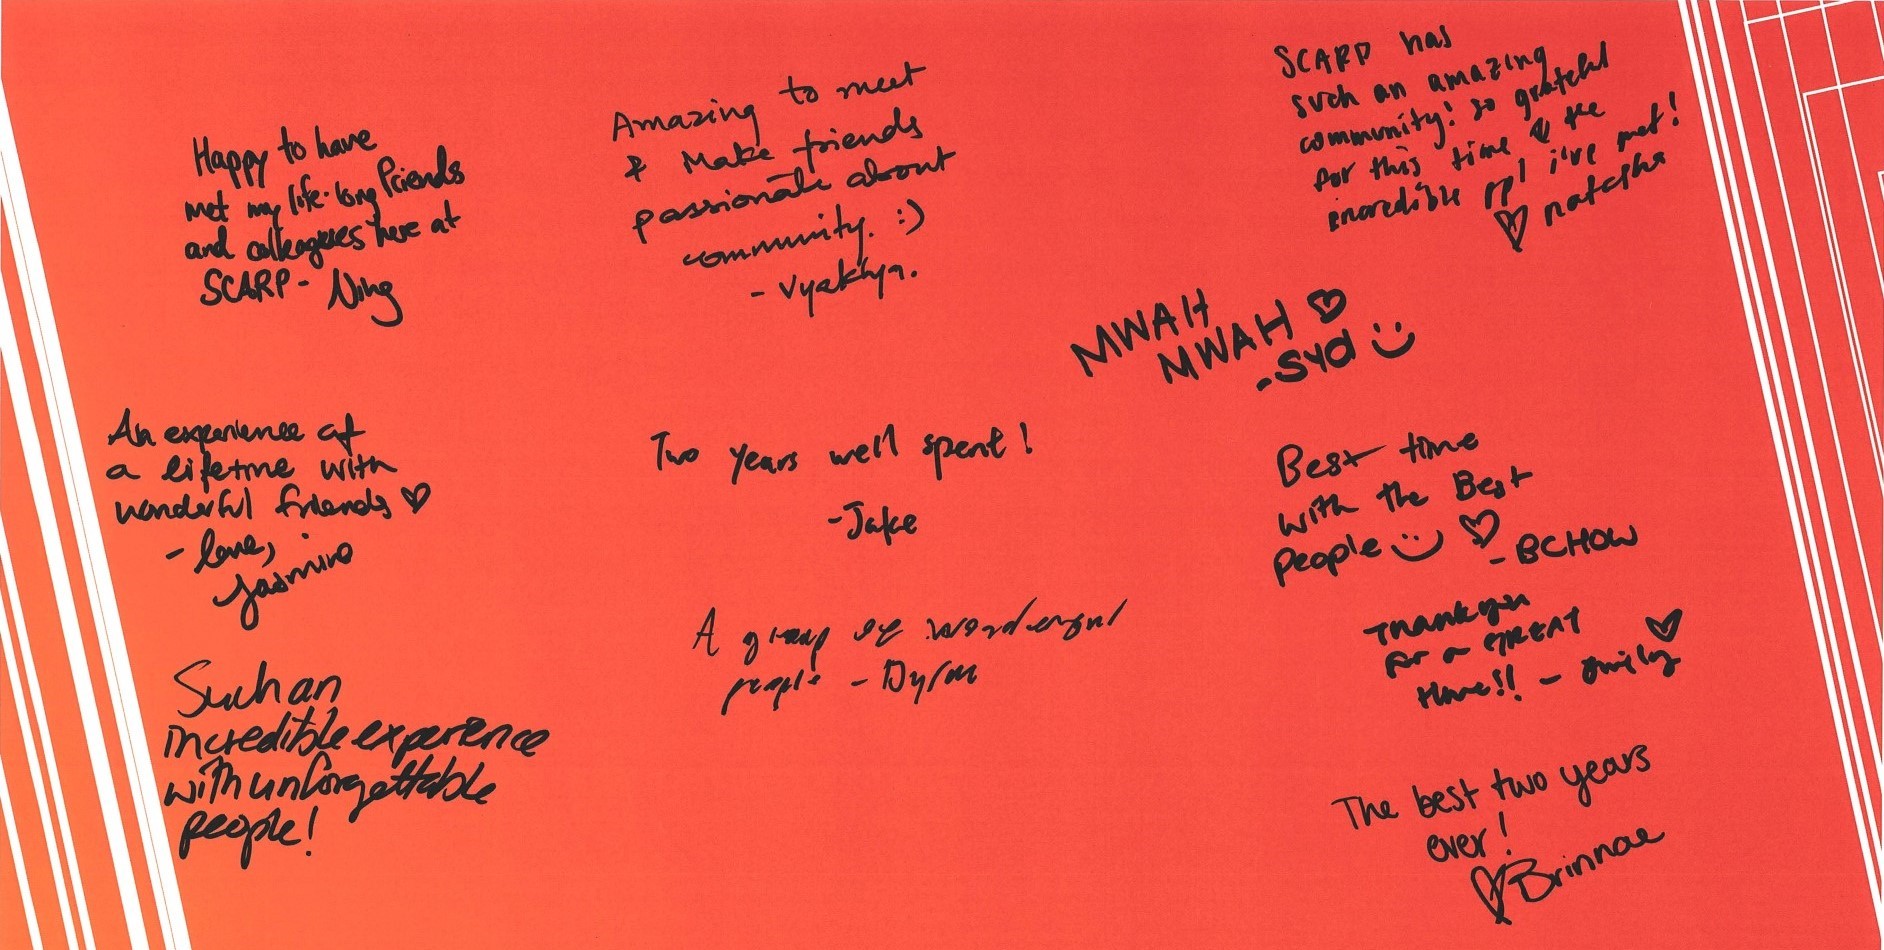 Happy to have
met my life-long friends
and colleagues here at
SCARP - Ning
Amazing to meet
& Make friends
passionate about
community. :)
- Vyakhya.
SCARP has
such an amazing
community! so grateful
for this time & the
incredible ppl i've met!
♡ natasha
MWAH
MWAH ♡
-Syd
An experience of
a lifetime with
wonderful friends ♡
- love,
Jasmine
Two years well spent!
-Jake
Best time
with the Best
People ♡
- BCHOW
A group of wonderful
people -
Thank you
for a GREAT
time!! - Emily ♡
Such an
incredible experience
with unforgettable
people!
The best two years
ever!
♡ Brinnae